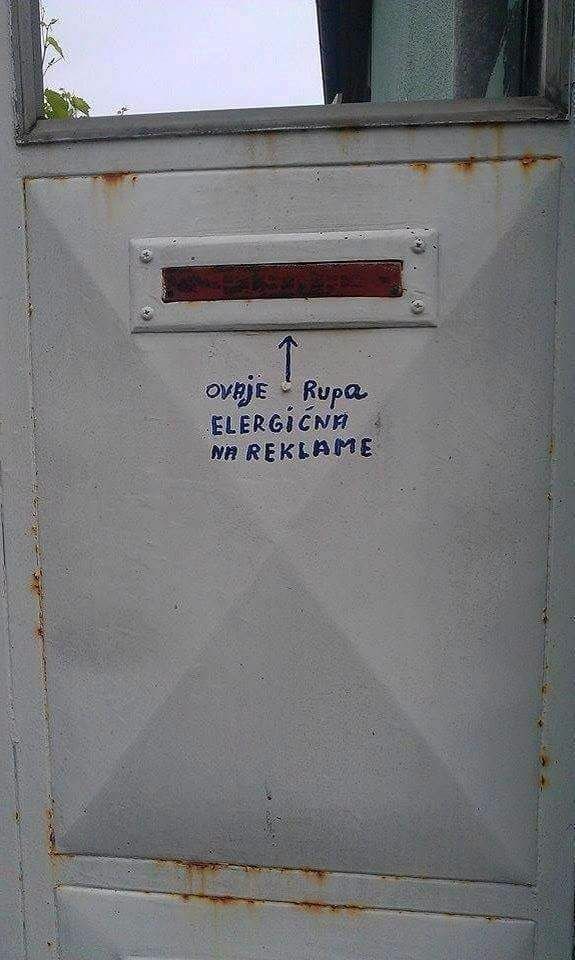 OVAJE Rupa
ELERGiĆNA
NA REKLAME